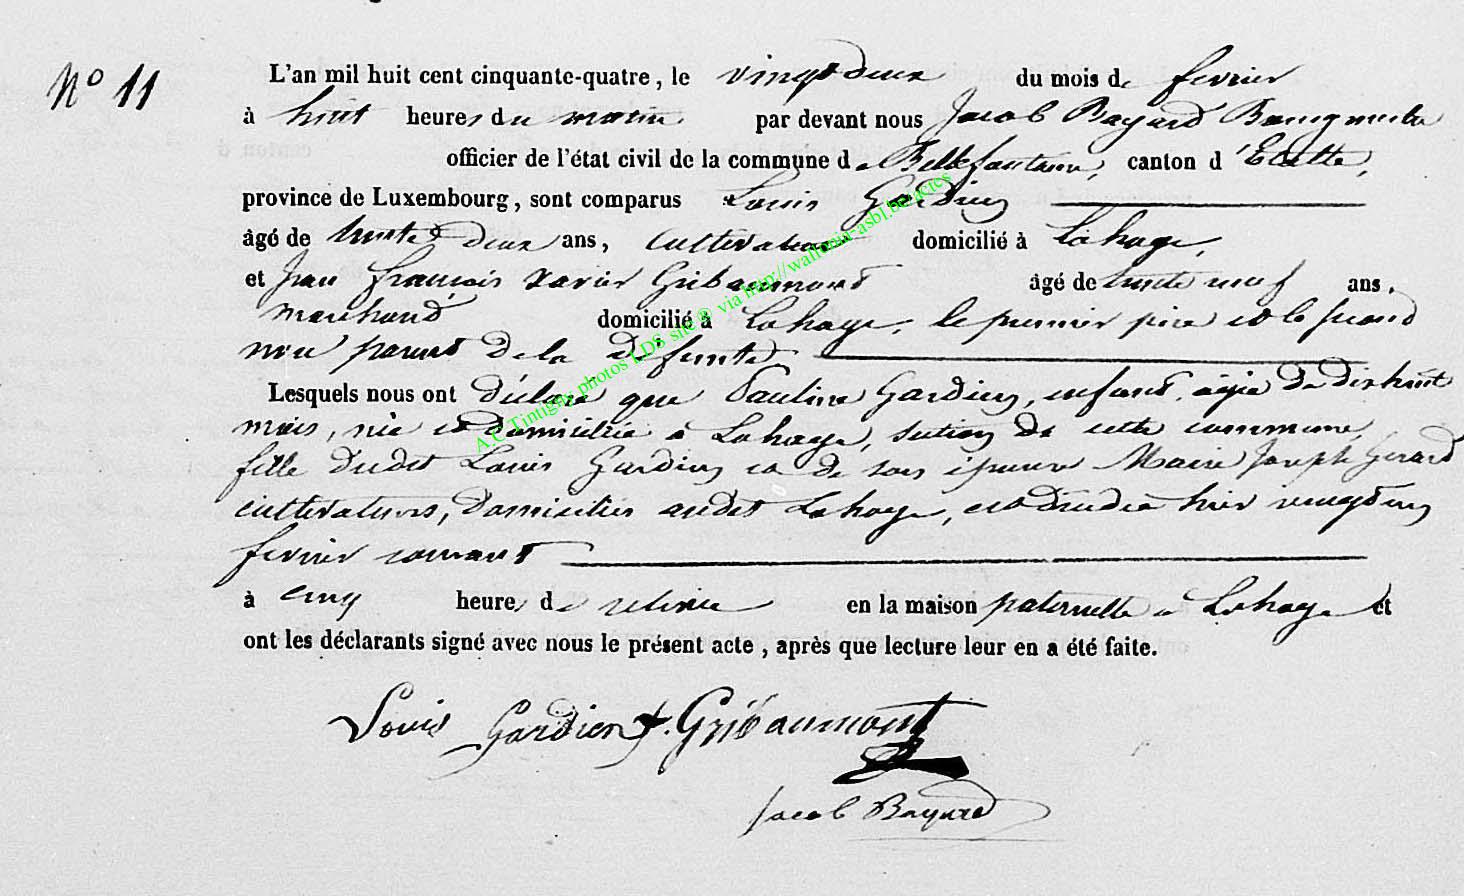 N° 11
L'an mil huit cent cinquante-quatre, le vingt deux du mois de fevrier
à huit heures du matin par devant nous Jacob Bayard Bourgmestre
officier de l'état civil de la commune de Bellefontaine, canton d'Etalle,
province de Luxembourg, sont comparus Louis Gardien
âgé de trente deux ans, cultivateur domicilié à Lahage,
et Jean françois Xavier Gribaumont âgé de trente neuf ans,
marchand domicilié à Lahage, le premier père et le second
non parent de la défunte
Lesquels nous ont déclaré que Pauline Gardien, enfant, agée de dix huit
mois, née et domiciliée à Lahage, section de cette commune,
fille dudit Louis Gardien et de son épouse Marie Joseph Gerard
cultivateurs, domiciliés audit Lahage, est décédée hier vingt un
fevrier courant
à cinq heures de relevée en la maison paternelle à Lahage et
ont les déclarants signé avec nous le présent acte, après que lecture leur en a été faite.
Louis Gardien f. Gribaumont
Jacob Bayard
A C Tintigny photos LDS site® via http://wallonia-asbl.be/actes